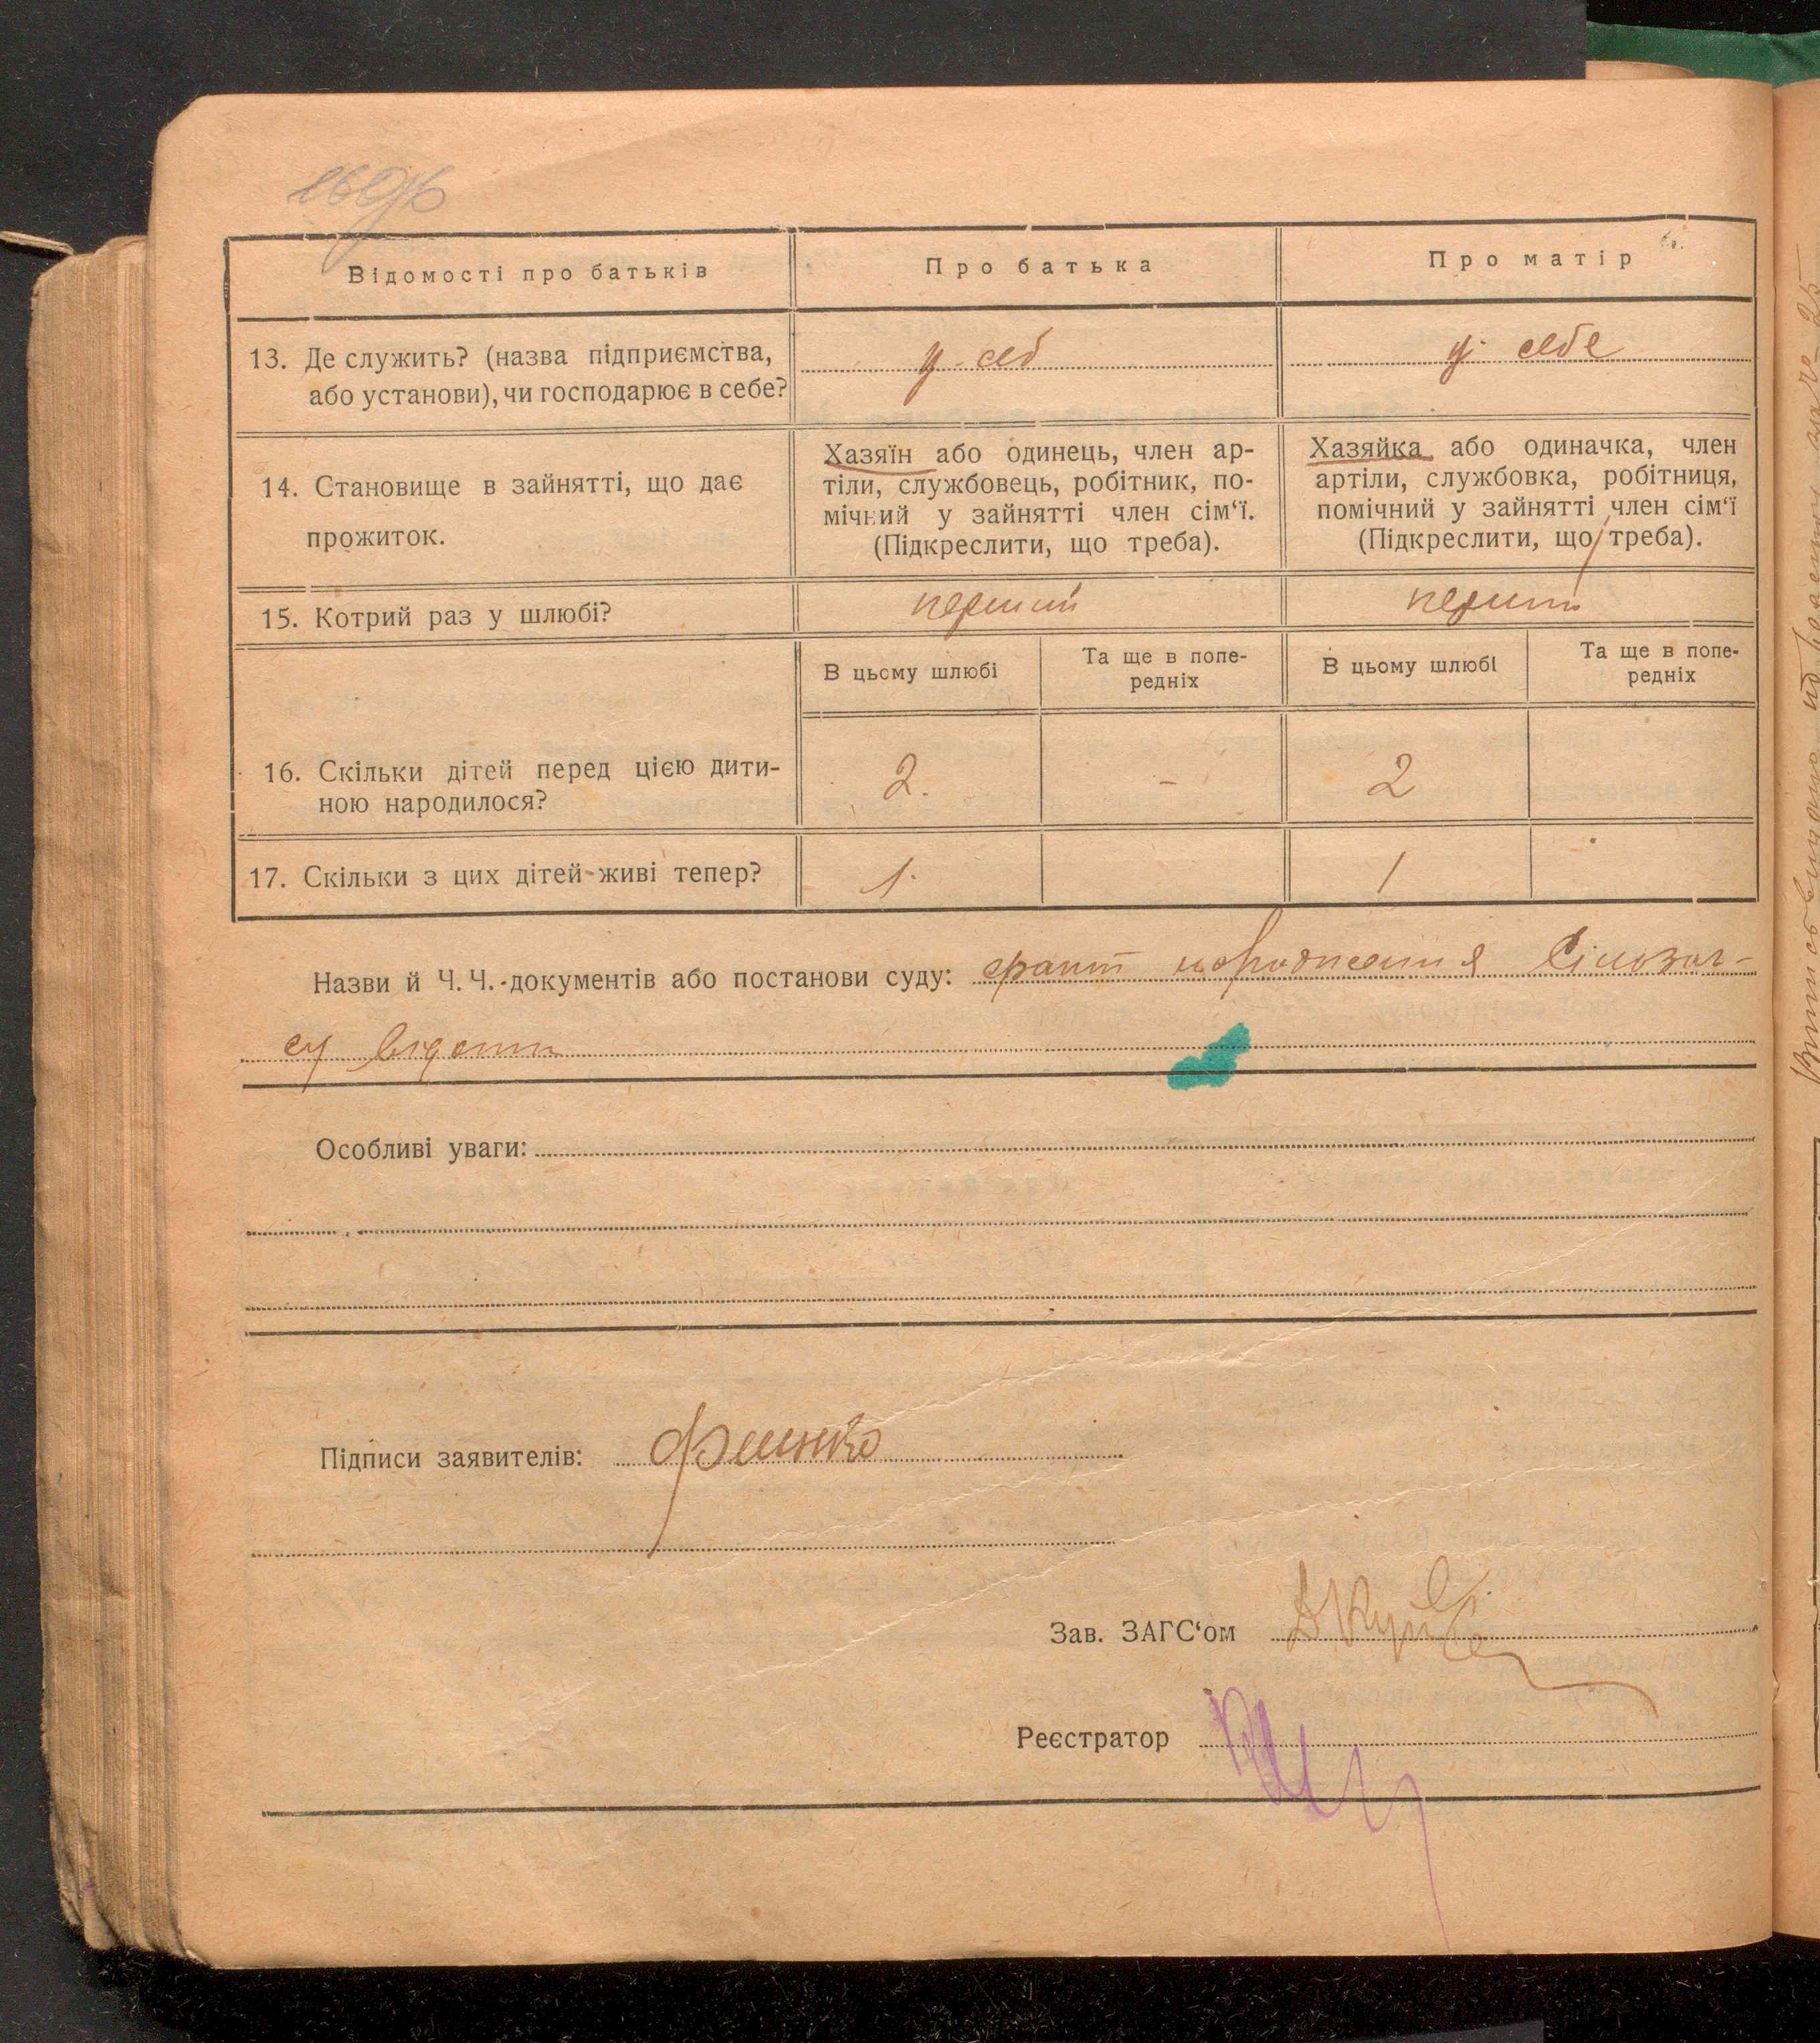 Відомості про батьків
Про батька
Про матір
13. Де служить? (назва підприємства,
або установи), чи господарює в себе?
у себ
у себе
14. Становище в зайнятті, що дає
прожиток.
Хазяїн або одинець, член ар-
тіли, службовець, робітник, по-
мічний у зайнятті член сім‘ї.
(Підкреслити, що треба).
Хазяйка або одиначка, член
артіли, службовка, робітниця,
помічний у зайнятті член сім‘ї
(Підкреслити, що треба).
15. Котрий раз у шлюбі?
перший
перший
В цьому шлюбі
Та ще в попе-
редніх
В цьому шлюбі
Та ще в попе-
редніх
16. Скільки дітей перед цією дити-
ною народилося?
2.
-
2
17. Скільки з цих дітей живі тепер?
1.
1
Назви й Ч. Ч. документів або постанови суду: факт народження
су відом
Особливі уваги:
Підписи заявителів:
Зав. ЗАГС‘ом
Реєстратор